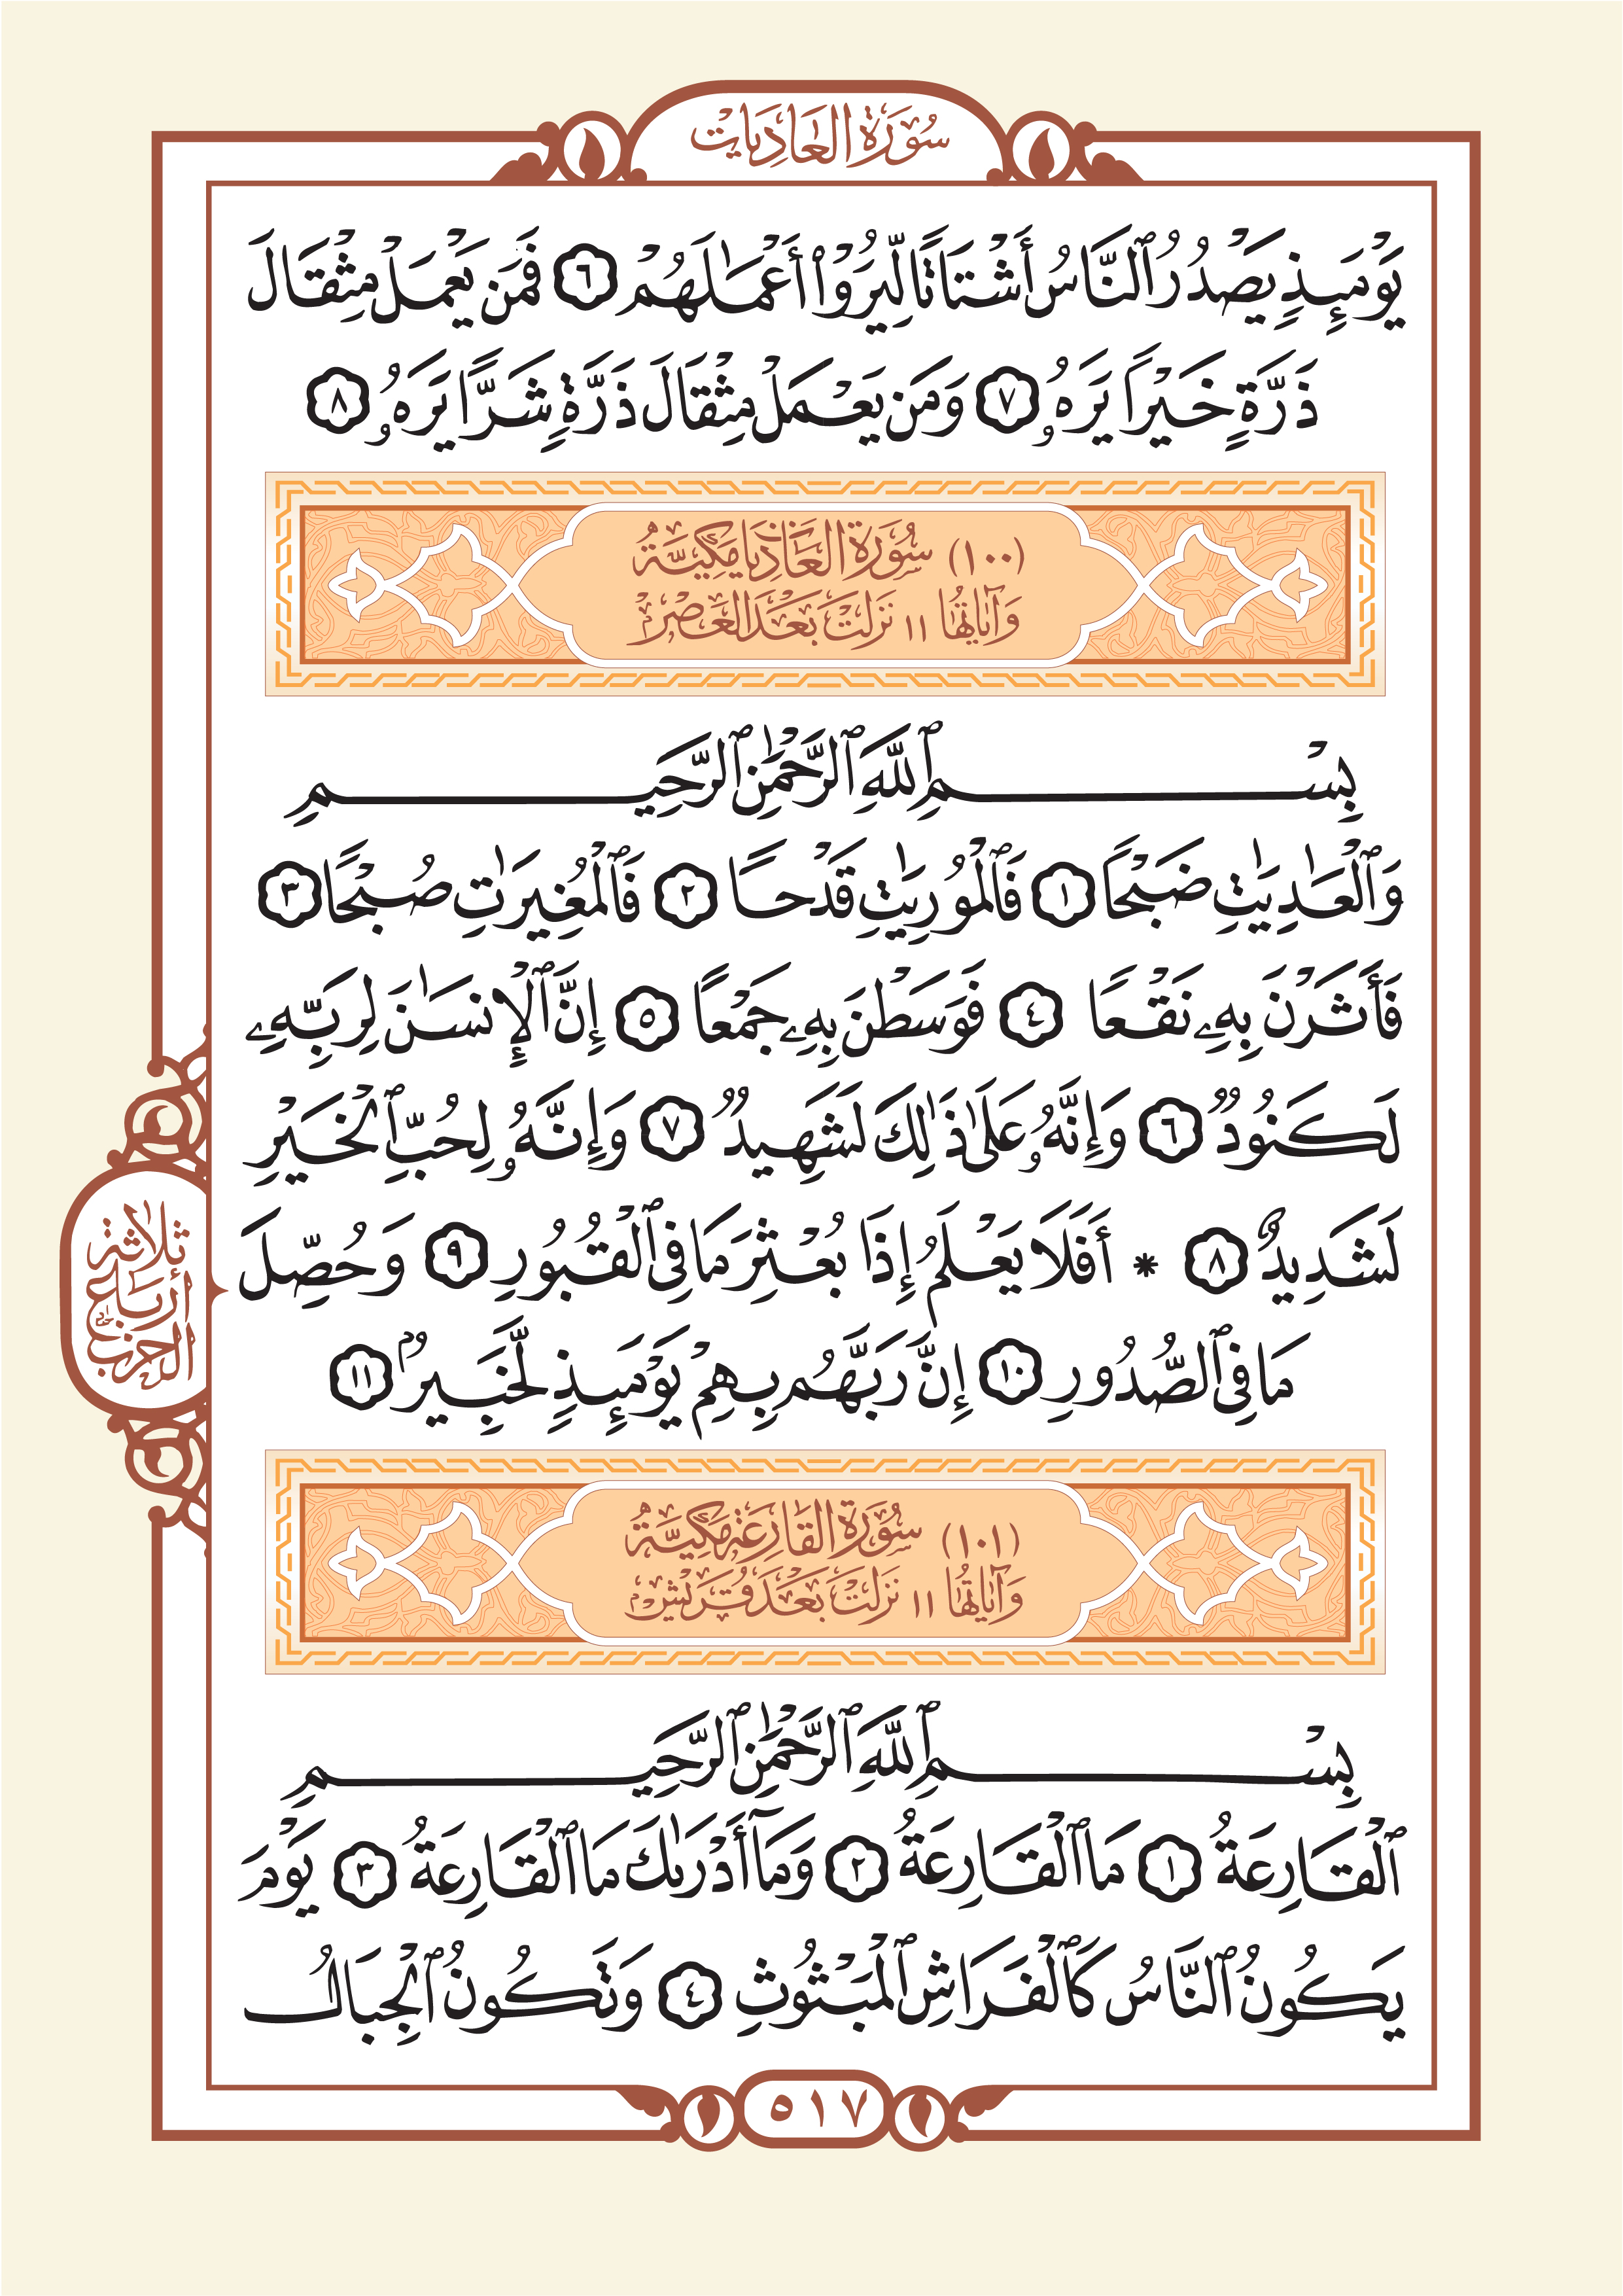 سُورَةُ العَادِيَات
يَوْمَئِذٍ يَصْدُرُ ٱلنَّاسُ أَشْتَاتًا لِّيُرَوْا۟ أَعْمَـٰلَهُمْ ٦ فَمَن يَعْمَلْ مِثْقَالَ
ذَرَّةٍ خَيْرًا يَرَهُۥ ٧ وَمَن يَعْمَلْ مِثْقَالَ ذَرَّةٍ شَرًّا يَرَهُۥ ٨
(١٠٠) سُورَةُ العَادِيَا مَكِيَّةٌ
وَآيَاتُهَا ١١ نَزَلَتْ بَعْدَ العَصْرِ
بِسْمِ ٱللَّهِ ٱلرَّحْمَـٰنِ ٱلرَّحِيمِ
وَٱلْعَـٰدِيَـٰتِ ضَبْحًا ١ فَٱلْمُورِيَـٰتِ قَدْحًا ٢ فَٱلْمُغِيرَٰتِ صُبْحًا ٣
فَأَثَرْنَ بِهِۦ نَقْعًا ٤ فَوَسَطْنَ بِهِۦ جَمْعًا ٥ إِنَّ ٱلْإِنسَـٰنَ لِرَبِّهِۦ
لَكَنُودٌ ٦ وَإِنَّهُۥ عَلَىٰ ذَٰلِكَ لَشَهِيدٌ ٧ وَإِنَّهُۥ لِحُبِّ ٱلْخَيْرِ
لَشَدِيدٌ ٨ * أَفَلَا يَعْلَمُ إِذَا بُعْثِرَ مَا فِى ٱلْقُبُورِ ٩ وَحُصِّلَ
مَا فِى ٱلصُّدُورِ ١٠ إِنَّ رَبَّهُم بِهِمْ يَوْمَئِذٍ لَّخَبِيرٌۢ ١١
ثلاثة
أرباع
الحزب
(١٠١) سُورَةُ القَارِعَةِ مَكِيَّةٌ
وَآيَاتُهَا ١١ نَزَلَتْ بَعْدَ قُرَيْشٍ
بِسْمِ ٱللَّهِ ٱلرَّحْمَـٰنِ ٱلرَّحِيمِ
ٱلْقَارِعَةُ ١ مَا ٱلْقَارِعَةُ ٢ وَمَآ أَدْرَىٰكَ مَا ٱلْقَارِعَةُ ٣ يَوْمَ
يَكُونُ ٱلنَّاسُ كَٱلْفَرَاشِ ٱلْمَبْثُوثِ ٤ وَتَكُونُ ٱلْجِبَالُ
٥١٧